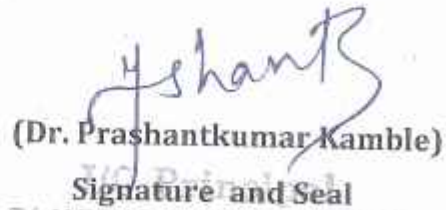 (Dr. Prashantkumar Kamble)
I/C Principal
Signature and Seal